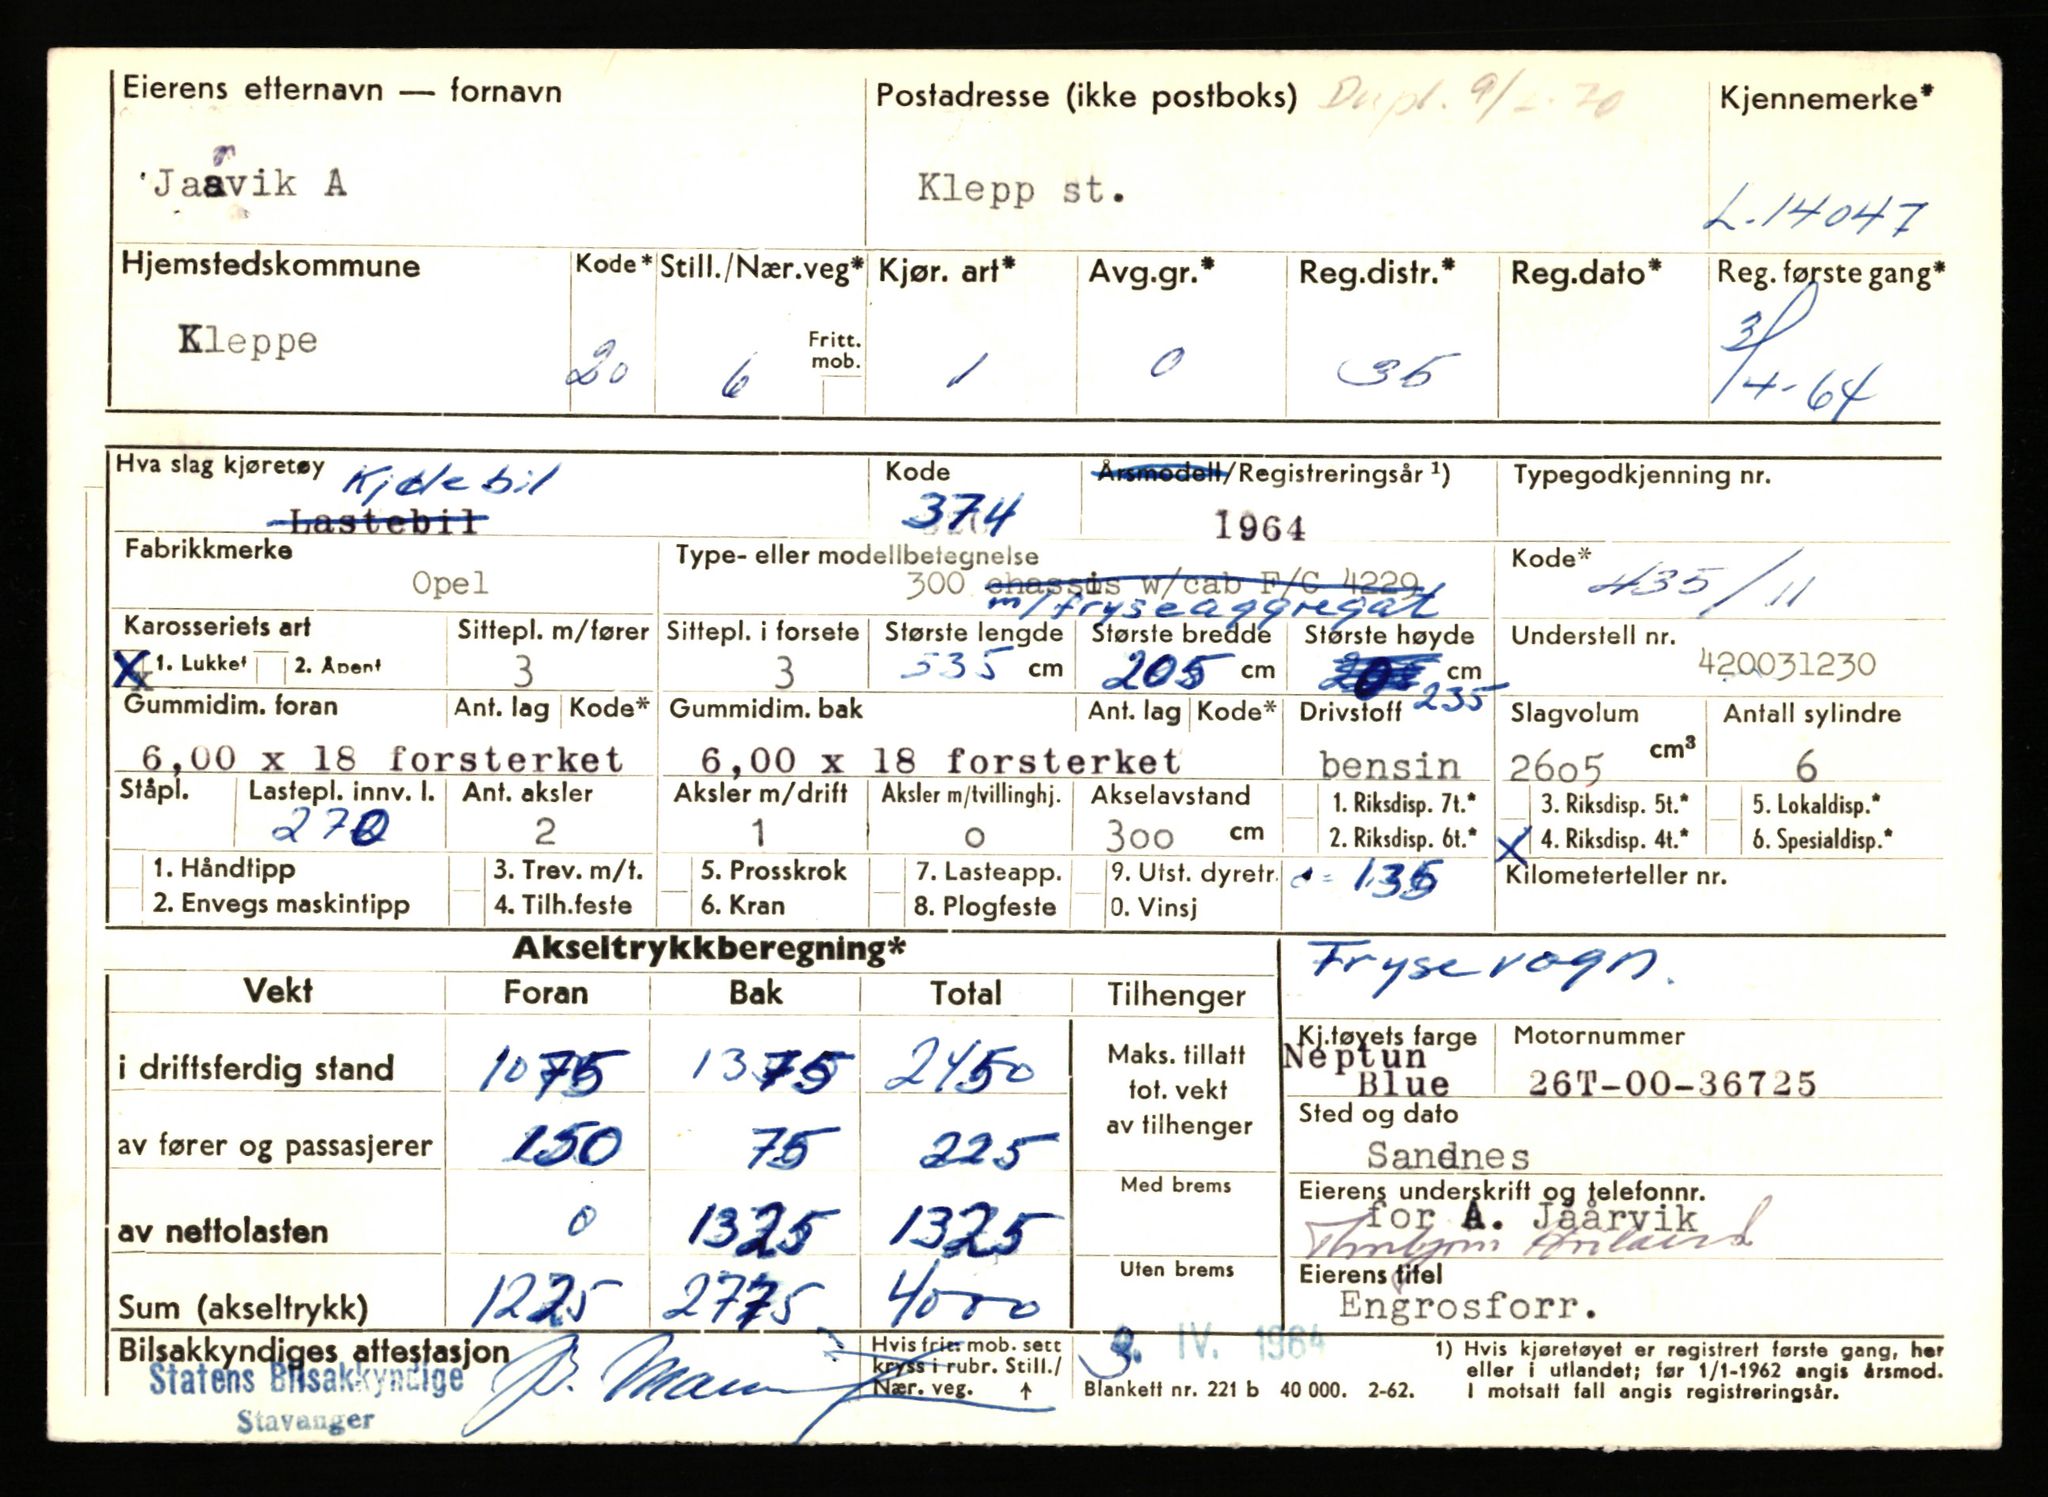 Eierens etternavn — fornavn
Postadresse (ikke postboks) Dupl. 9/2-70
Kjennemerke*
Jaavik A
r
Klepp st.
L-14047
Hjemstedskommune
Kode*
Still./Nær.veg*
Kjør. art*
Avg.gr.*
Reg.distr.*
Reg.dato*
Reg. første gang*
Kleppe
20
6
Fritt. mob.
1
0
36
3/4-64
Hva slag kjøretøy
Kjølebil
Lastebil
Kode
374
Årsmodell/Registreringsår ¹)
1964
Typegodkjenning nr.
Fabrikkmerke
Opel
Type- eller modellbetegnelse
300 chassis w/cab F/C 4229
m/fryseaggregat
Kode*
435/11
Karosseriets art
X 1. Lukket 2. Åpent
Sittepl. m/fører
3
Sittepl. i forsete
3
Største lengde
535 cm
Største bredde
205 cm
Største høyde
cm
235
Understell nr.
420031230
Gummidim. foran
Ant. lag
Kode*
6,00 x 18 forsterket
Gummidim. bak
Ant. lag
Kode*
6,00 x 18 forsterket
Drivstoff
bensin
Slagvolum
2605 cm³
Antall sylindre
6
Ståpl.
Lastepl. innv. l.
270
Ant. aksler
2
Aksler m/drift
1
Aksler m/tvillinghj.
0
Akselavstand
300 cm
1. Riksdisp. 7t.*
2. Riksdisp. 6t.*
3. Riksdisp. 5t.*
X 4. Riksdisp. 4t.*
5. Lokaldisp.*
6. Spesialdisp.*
1. Håndtipp
2. Envegs maskintipp
3. Trev. m/t.
4. Tilh.feste
5. Prosskrok
6. Kran
7. Lasteapp.
8. Plogfeste
9. Utst. dyretr.
0. Vinsj
= 135
Kilometerteller nr.
Akseltrykkberegning*
Frysevogn.
Vekt Foran Bak Total Tilhenger
i driftsferdig stand 1075 1375 2450
av fører og passasjerer 150 75 225
av nettolasten 0 1325 1325
Sum (akseltrykk) 1225 2775 4000
Maks. tillatt
tot. vekt
av tilhenger
Med brems
Uten brems
Kj.tøyets farge
Neptun
Blue
Motornummer
26T-00-36725
Sted og dato
Sandnes
Eierens underskrift og telefonnr.
for A. Jaårvik
Eierens titel
Engrosforr.
Bilsakkyndiges attestasjon
Statens Bilsakkyndige
Stavanger
Hvis fritt mob. sett
kryss i rubr. Still./
Nær. veg. ↑
3. IV. 1964
Blankett nr. 221 b 40 000. 2-62.
1) Hvis kjøretøyet er registrert første gang, her
eller i utlandet; før 1/1-1962 angis årsmod.
I motsatt fall angis registreringsår.